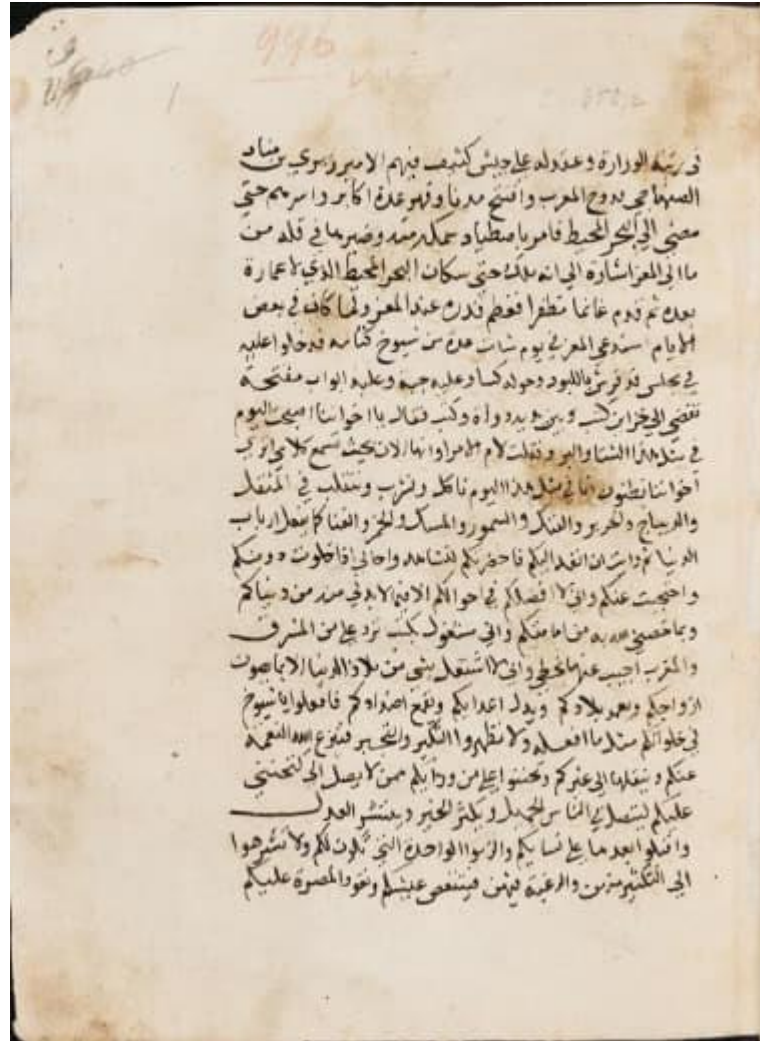 996
فى رتبة الوزارة وعدوله على جيش كثيف فيهم الامير زيرى بن مناد
الصنهاجي فدوح المغرب وافتتح مدنا وقهر عدة اكابر واسرهم حتى
مضى الى البحر المحيط فامر باصطياد سمك منه وصيرها في قلة من
ما الى المعز اشارة الى انه ملك حتى سكان البحر المحيط الذي لا عمارة
بعده ثم قدم غانما مظفرا فعظم قدره عند المعز ولما كان في بعض
الايام استدعى المعز في يوم شات عدة من شيوخ كتامه فدخلوا عليه
في مجلس قد فرش باللبود وحوله كسا وعليه جبة وعليه ابواب مفتحة
تفضي الى خزاين كتب وبين يديه دواة وكتب فقال يا اخواننا اصبحت اليوم
في مثل هذا الشتا والبرد فقلت لام الامرا وانها الان بحيث تسمع كلامي اترى
اخواننا يظنون انا في مثل هذا اليوم ناكل ونشرب ونتقلب في المثقل
والديباج والحرير والفنك والسمور والمسك والخمر والغنا كما يفعل ارباب
الدنيا ثم رايت ان انفذ اليكم فاحضرتكم لتشاهدوا حالي اذا خلوت دونكم
واحتجبت عنكم واني لا افضلكم في احوالكم الا فيما لا بد لي منه من دنياكم
وبما خصني الله به من امامتكم واني مشغول بكتب ترد علي من المشرق
والمغرب اجيب عنها بخطي واني لا اشتغل بشى من ملاذ الدنيا الا بما يصون
ارواحكم ويعمر بلادكم ويذل اعدايكم ويقمع اضدادكم فافعلوا يا شيوخ
في خلواتكم مثل ما افعله ولا تظهروا التكبر والتجبر فينزع الله النعمة
عنكم وينقلها الى غيركم وتحننوا على من ورايكم ممن لا يصل الي كتحنني
عليكم ليتصل في الناس الجميل ويكثر الخير وينتشر العدل
واقبلوا بعدها على نسايكم والزموا الواحدة التي تكون لكم ولا تشرهوا
الى التكثير منهن والرغبة فيهن فيتنغص عيشكم وتعود المضرة عليكم